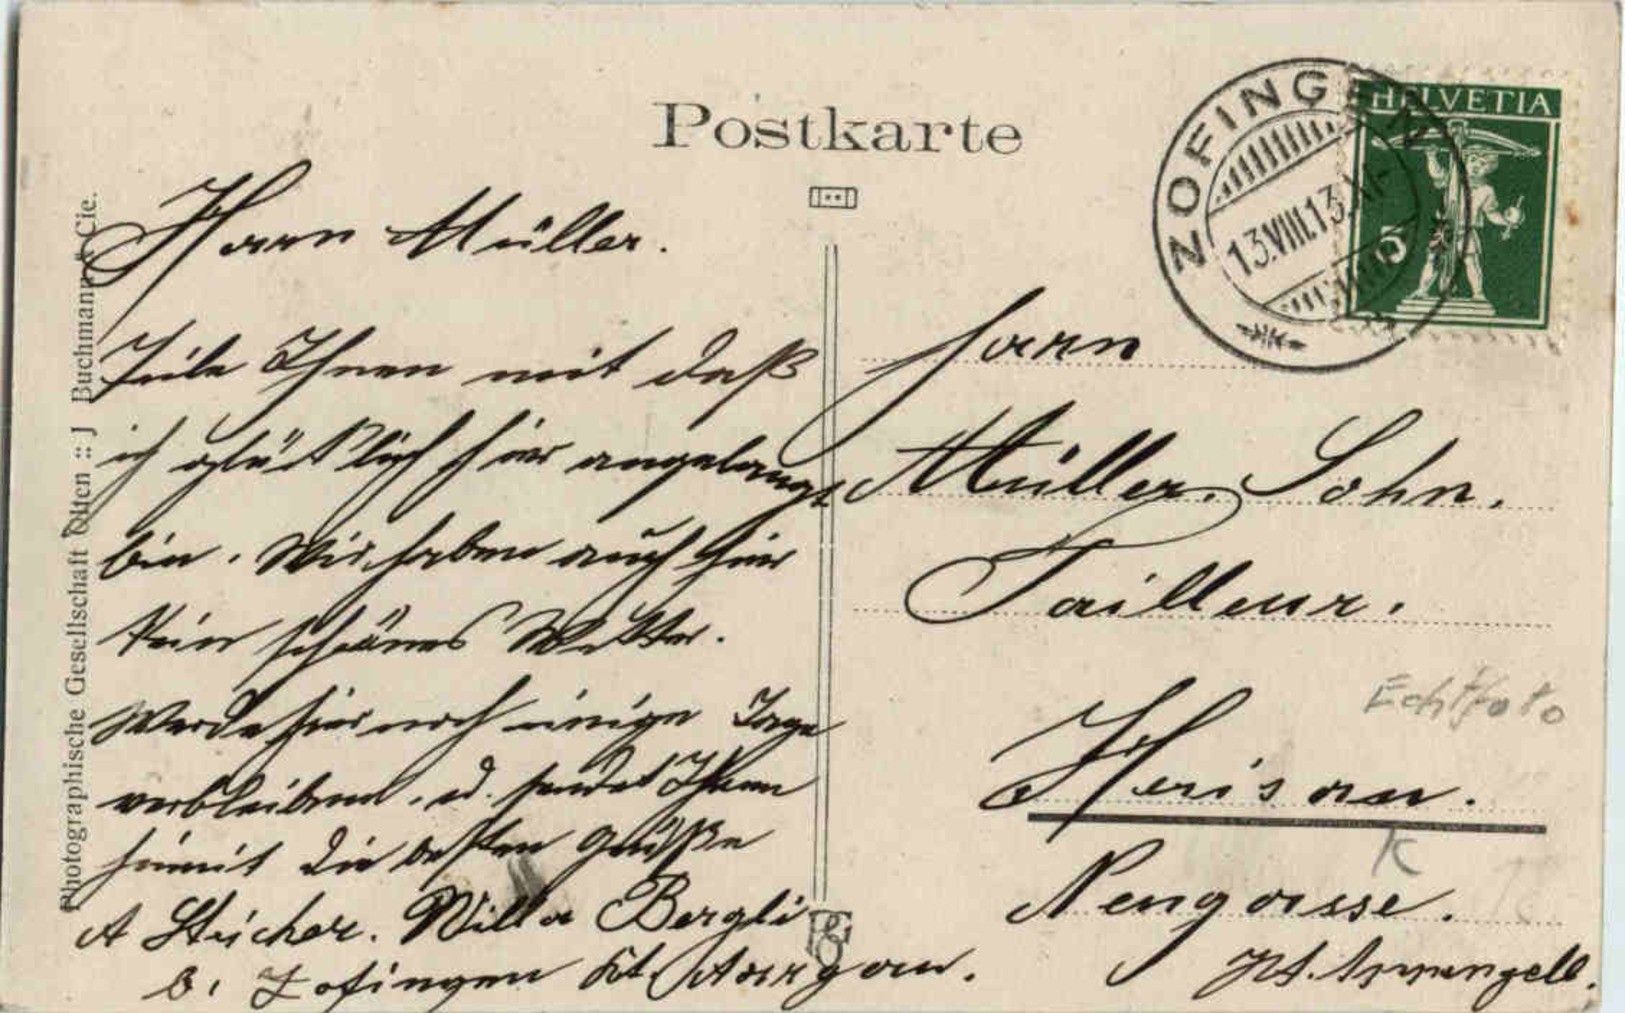 Postkarte
ZOFINGEN
13.VIII.13.
HELVETIA
5
Herrn Müller.
Teile Ihnen mit daß
ich glücklich hier angelangt
bin. Wir haben auch hier
kein schönes Wetter.
Werde hier noch einige Tage
verbleiben. u. sendet Ihnen
hiemit die besten Grüße
A Stricher. Willa Bergli
b. Zofingen Kt. Aargau.
Herrn
Müller. Sohn.
Tailleur.
Herisau.
Neugasse.
Kt. Appenzell.
Echtfoto
K
Photographische Gesellschaft Olten :: J Buchmann & Cie.